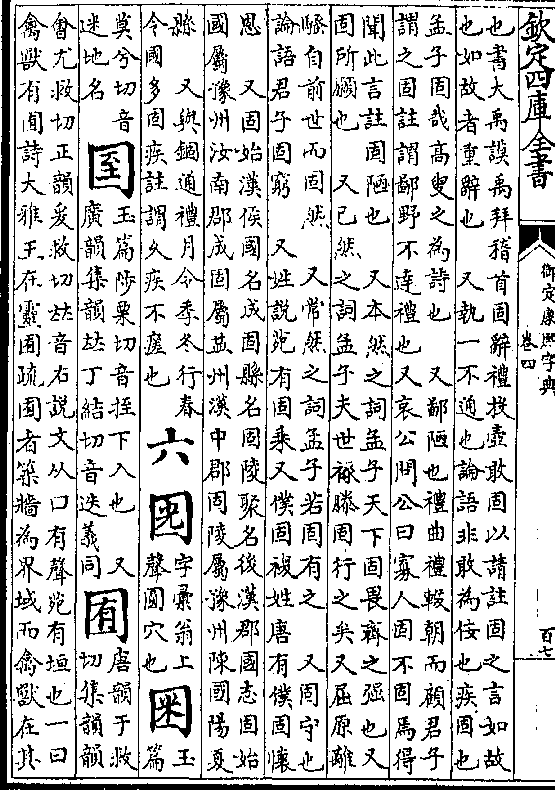 欽定四庫全書
御定康熙字典
卷四
百七
也書大禹謨禹拜稽首固辭禮投壺敢固以請註固之言如故
也如故者重辭也 又執一不通也論語非敢為佞也疾固也
孟子固哉高叟之為詩也 又鄙陋也禮曲禮輟朝而顧君子
謂之固註謂鄙野不達禮也又哀公問公曰寡人固不固焉得
聞此言註固陋也 又本然之詞孟子天下固畏齊之彊也又
固所願也 又已然之詞孟子夫世祿滕固行之矣又屈原離
騷自前世而固然 又常然之詞孟子若固有之 又固守也
論語君子固窮 又姓說苑有固乘又僕固複姓唐有僕固懷
恩 又固始漢侯國名成固縣名固陵聚名後漢郡國志固始
國屬豫州汝南郡成固屬益州漢中郡固陵屬豫州陳國陽夏
縣 又與錮通禮月令季冬行春
令國多固疾註謂久疾不瘥也
六
字彙翁上
聲圓穴也
玉
篇
莫兮切音
迷地名
玉篇陟栗切音挃下入也 又
廣韻集韻𠀤丁結切音迭義同
囿
唐韻于救
切集韻韻
會尤救切正韻爰救切𠀤音右說文从囗有聲苑有垣也一曰
禽獸有囿詩大雅王在靈囿疏囿者築牆為界域而禽獸在其